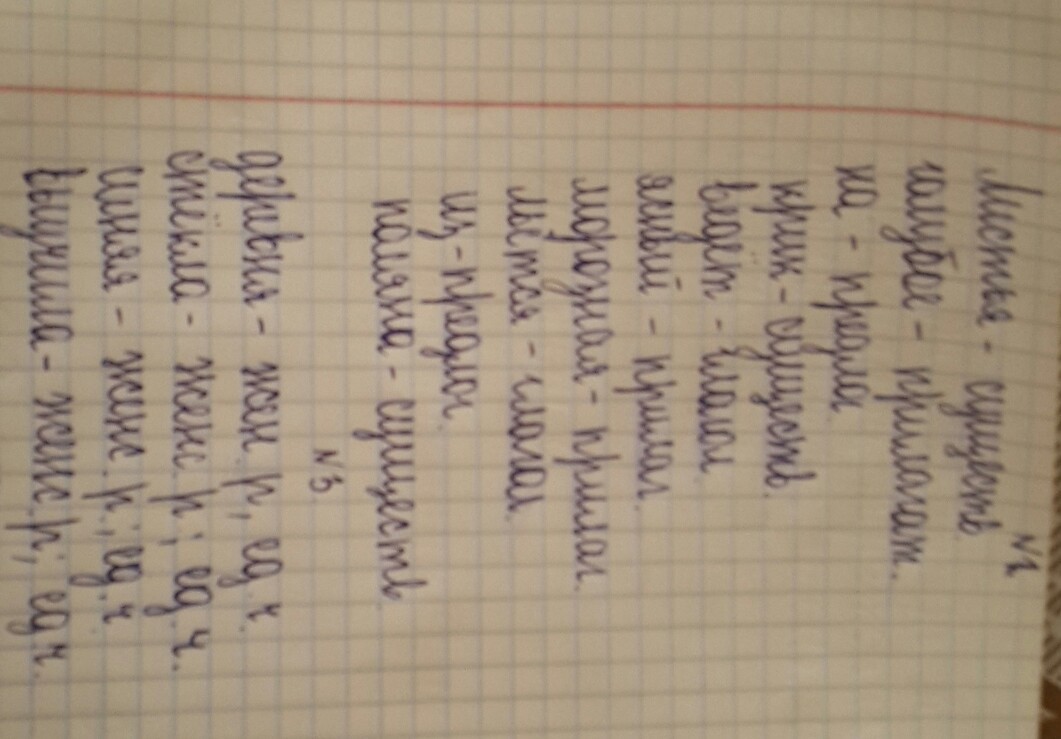 №1
Листья - существ
голубое - прилагат.
на - предлог
крик - существ.
ведёт - глагол
живый - прилаг.
морозная - прилаг.
мётся - глагол
из - предлог
поляна - существ.
№3
деревня - жен. р, ед. ч
стёкла - женс р; ед ч.
синяя - женс р; ед. ч
вышила - женс. р; ед ч.